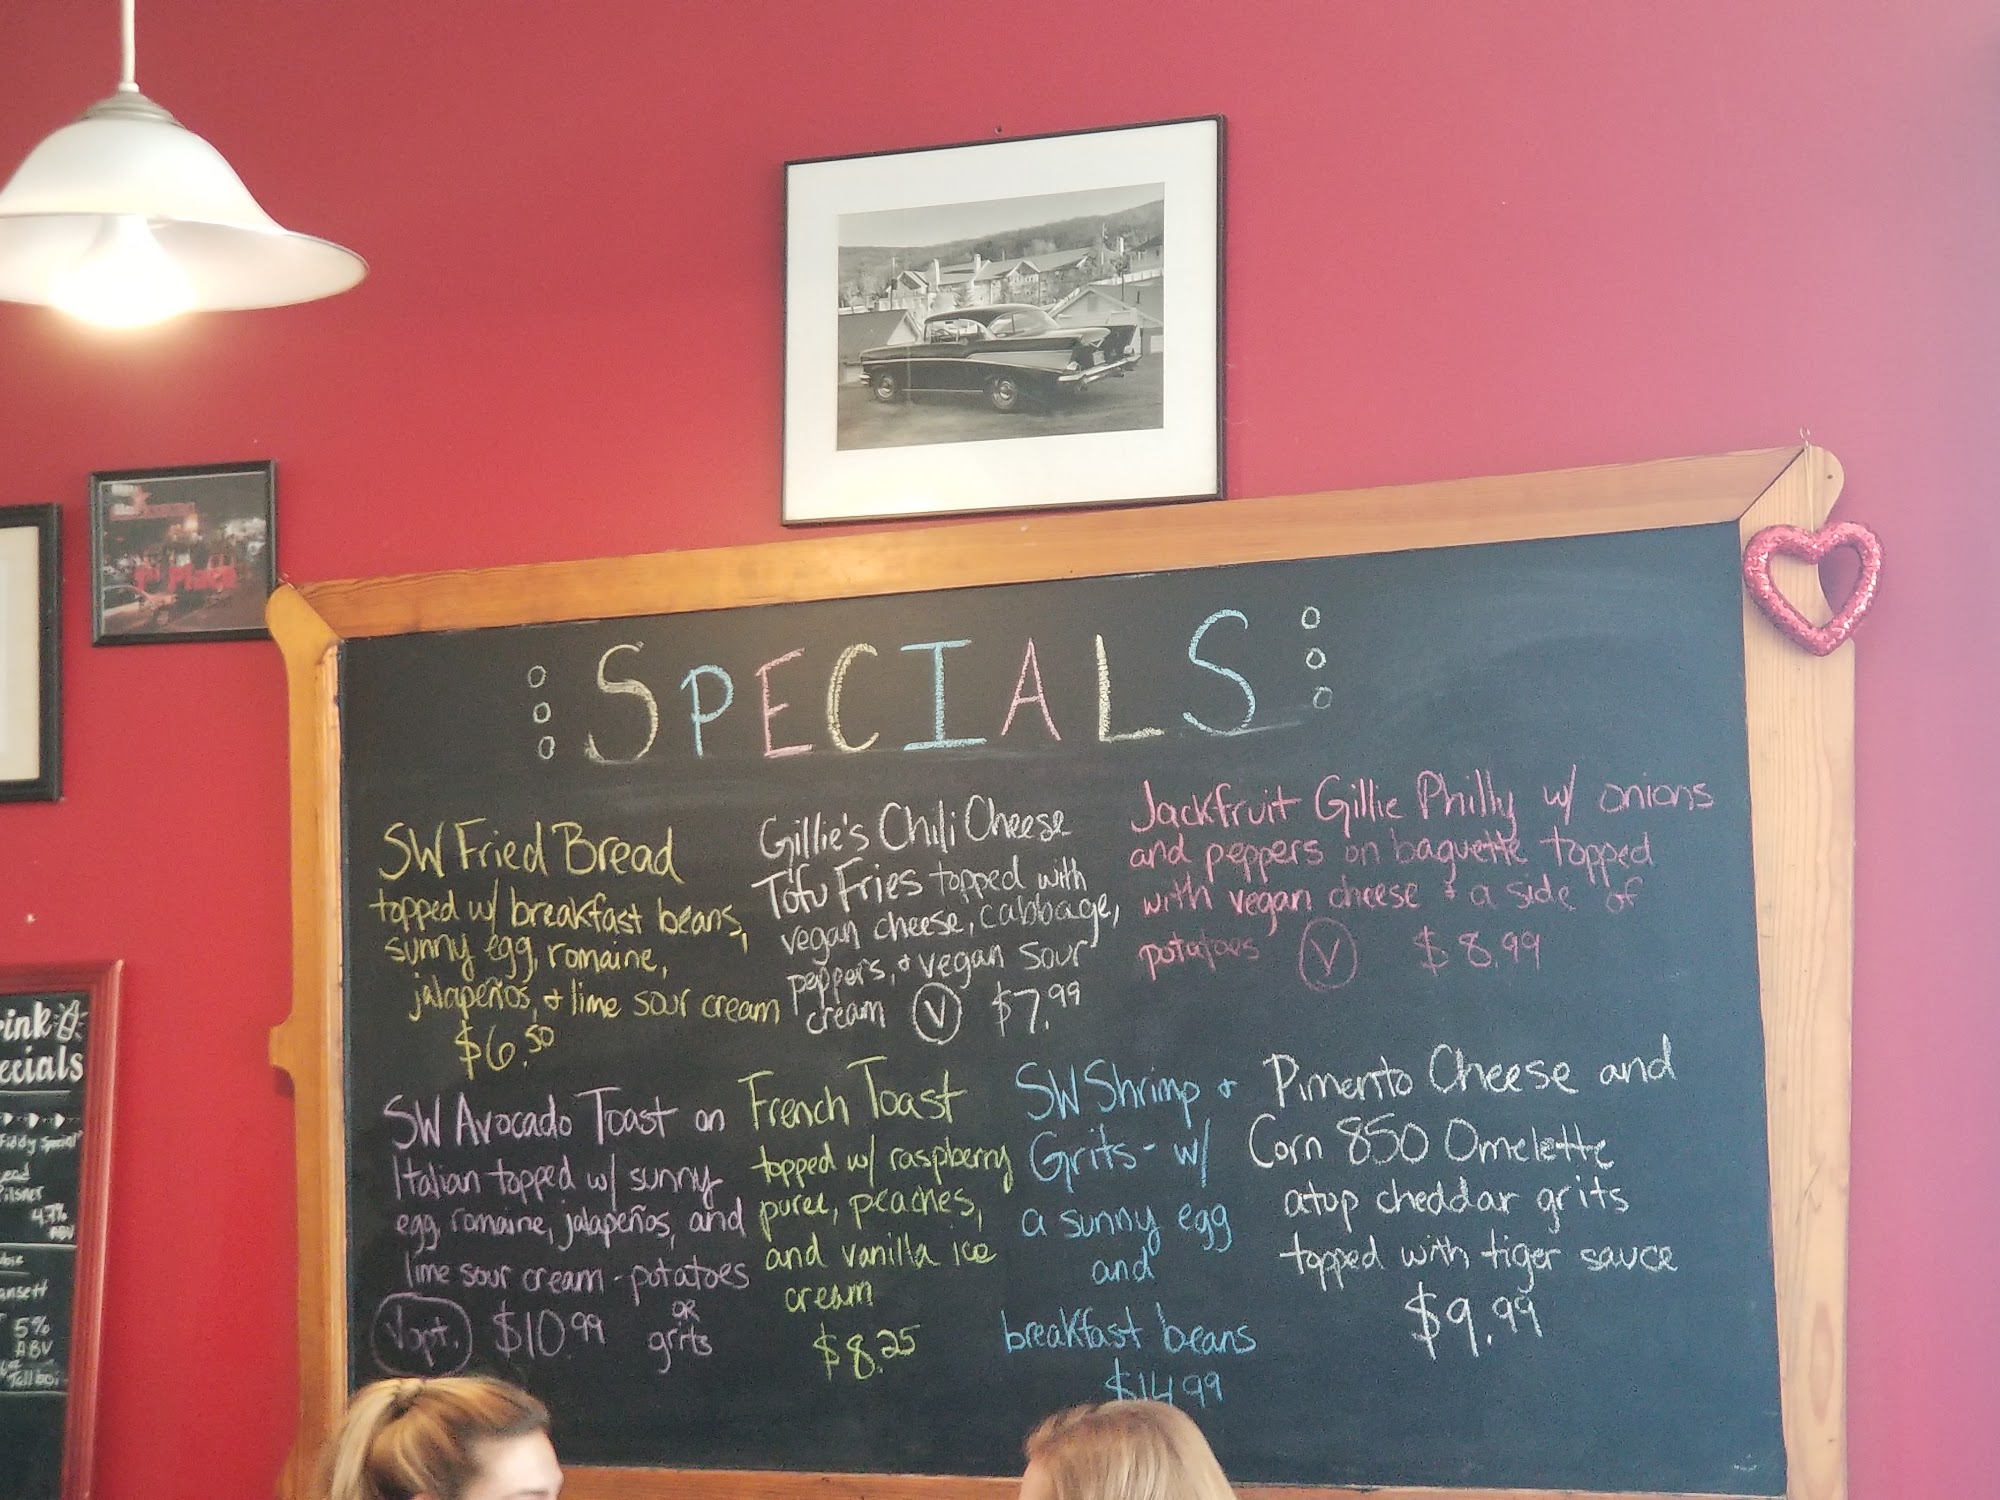 SPECIALS
SW Fried Bread
topped w/ breakfast beans,
sunny egg, romaine,
jalapeños, + lime sour cream
$6.50
Gillie's Chili Cheese
Tofu Fries topped with
vegan cheese, cabbage,
peppers, + vegan sour
cream V $7.99
Jackfruit Gillie Philly w/ onions
and peppers on baguette topped
with vegan cheese + a side of
potatoes V $8.99
SW Avocado Toast on
Italian topped w/ sunny
egg, romaine, jalapeños, and
lime sour cream - potatoes
OR
V opt. $10.99 grits
French Toast
topped w/ raspberry
puree, peaches,
and vanilla ice
cream
$8.25
SW Shrimp +
Grits - w/
a sunny egg
and
breakfast beans
$14.99
Pimento Cheese and
Corn 850 Omelette
atop cheddar grits
topped with tiger sauce
$9.99
rink
ecials
Special"
Pilsner
4.7%
ABV
ansett
5%
ABV
Tallboi